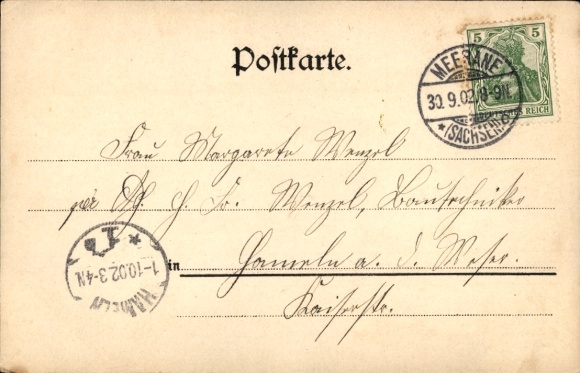 Postkarte.
5 5
DEUTSCHES REICH
MEERANE
30.9.02 8-9N.
* (SACHSEN)
Frau Margarete Wenzel
per Fr. Wenzel, Bautechniker
in Hameln a. d. Weser.
Kaiserstr.
HAMELN
1-10.02.3-4N
* 1b